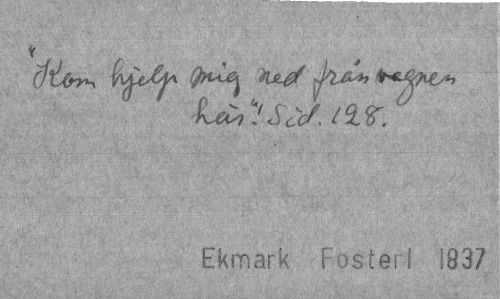 "Kom hjelp mig ned från vagnen
här"! Sid. 128.
Ekmark Fosterl 1837